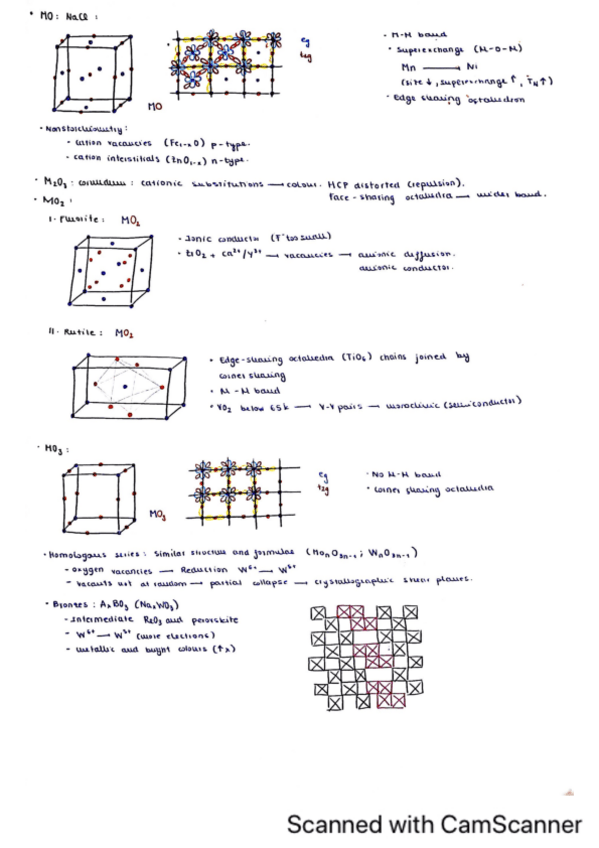 • MO: NaCl:
eg
t2g
MO
- M-M band
• Superexchange (M-O-M)
Mn ⟶ Ni
(size ↓, superexchange ↑, TN↑)
• Edge sharing octahedron
• Nonstoichiometry:
- cation vacancies (Fe1-xO) p-type.
- cation interstitials (ZnO1-x) n-type.
• M2O3: corundum: cationic substitutions ⟶ colour. HCP distorted (repulsion).
Face-sharing octahedra ⟶ wider band.
• MO2:
I. Fluorite: MO2
• Ionic conductor
• ZrO2 + Ca2+/Y3+ ⟶ vacancies ⟶ anionic diffusion.
anionic conductor.
II. Rutile: MO2
• Edge-sharing octahedra (TiO6) chains joined by
corner sharing
• M-M band
• VO2 below 65K ⟶ V-V pairs ⟶ monoclinic (semiconductor)
• MO3:
MO3
eg
t2g
- No M-M band
• Corner sharing octahedra
• Homologous series: Similar structure and formulas (MonO3n-1; WnO3n-1)
- oxygen vacancies ⟶ Reduction W6+ ⟶ W5+
- vacants not at random ⟶ partial collapse ⟶ crystallographic shear planes.
• Bronzes: AxBO3 (NaxWO3)
- Intermediate ReO3 and perovskite
- W6+ ⟶ W5+ (more electrons)
- metallic and bright colours (↑x)
Scanned with CamScanner